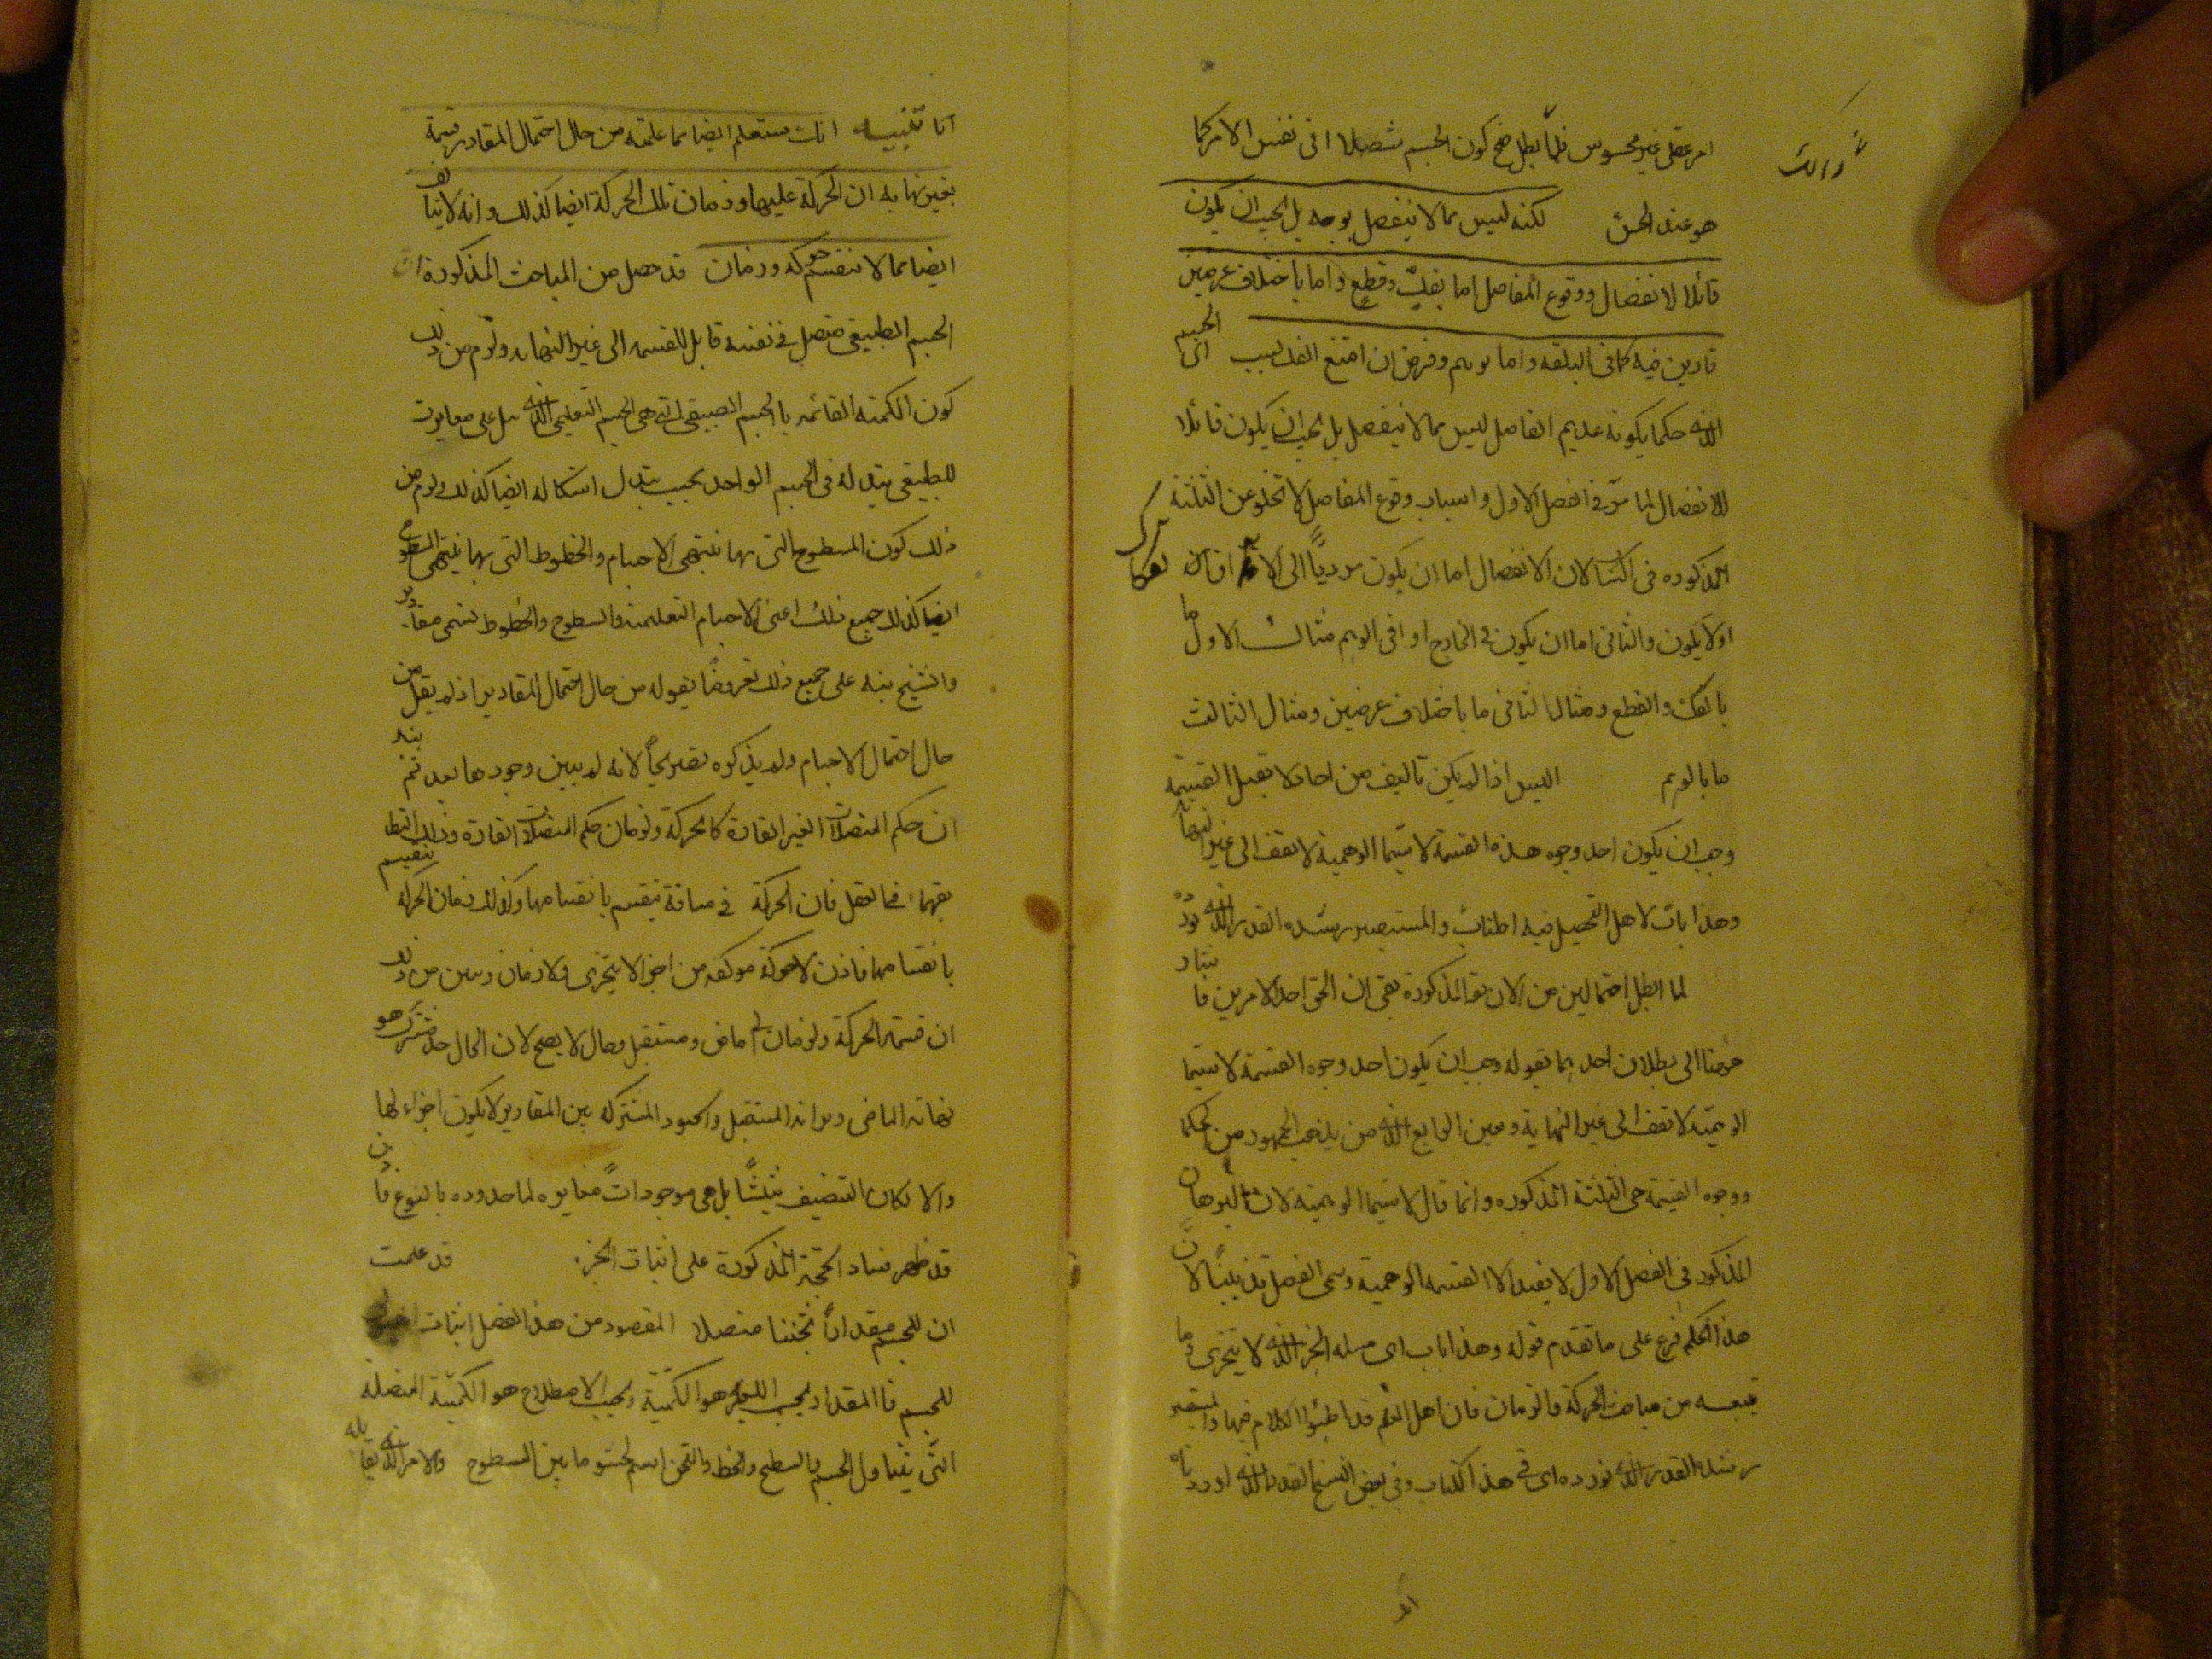 امر عقلى غير محسوس فلما بطل صح كون الجسم متصلا فى نفس الامر كما
هو عند الحس لكنه ليس مما لا ينفصل بوجه بل يجب ان يكون
قابلا للانفصال ووقوع المفاصل اما بفك وقطع واما باختلاف عرضين
قارين فيه كما فى البلقة واما بوهم وفرض ان امتنع الفك لسبب الجسم
الذى حكما بكونه عديم المفاصل ليس مما لا ينفصل بل يجب ان يكون قابلا
للانفصال لما مر فى الفصل الاول واسباب وقوع المفاصل لا تخلو عن الثلثة
المذكوره فى الكتاب لان الانفصال اما ان يكون مودياً الى الافتراق
اولا يكون والثانى اما ان يكون فى الخارج او فى الوهم مثال الاول ما
بالفك والقطع ومثال الثانى ما باختلاف عرضين ومثال الثالث
ما بالوهم اليس اذا لم يكن تاليف من احاد لا يقبل القسمة
وجب ان يكون احد وجوه هذه القسمة لا سيما الوهمية لا تقف الى غير النهاية
وهذا باب لاهل التحصيل فيه اطناب والمستبصر يرشده القدر الذى نورده
لما ابطل احتمالين من الاربعة المذكورة بقى ان الحق احد الامرين
الى بطلان احدهما بقوله وجب ان يكون احد وجوه القسمة لا سيما
الوهمية لا تقف الى غير النهاية وتعين الرابع الذى من مذهب الجمهور من الحكما
ووجوه القسمة هى الثلثة المذكوره وانما قال لا سيما الوهمية لان البرهان
المذكور فى الفصل الاول لا يفيد الا القسمه الوهمية وسمى الفصل تذنيبًا لان
هذا الحكم فرع على ما تقدم قوله وهذا باب اى مسله الجزء الذى لا يتجزى وما
يتبعه من مباحث الحركة والزمان فان اهل العلم قد اطنبوا الكلام فيها والمستبصر
يرشده القدر الذى نورده اى فى هذا الكتاب وفى بعض النسخ القدر الذى اوردناه
تنبيه انك ستعلم ايضا مما علمته من حال احتمال المقادير قسمة
بغير نهاية ان الحركة عليها وزمان تلك الحركة ايضا كذلك وانه لا يتالف
ايضا مما لا ينقسم حركة وزمان قد حصل من المباحث المذكورة ان
الجسم الطبيعى متصل فى نفسه قابل للقسمه الى غير النهايه ولزم من ذلك
كون الكمية القائمه بالجسم الطبيعى التى هى الجسم التعليمى الذى يدل على مغايرته
للطبيعى تبدله فى الجسم الواحد بحسب تبدل اشكاله ايضا كذلك ولزم من
ذلك كون السطوح التى بها تنتهى الاجسام والخطوط التى بها ينتهى السطوح
ايضا كذلك جميع ذلك اعنى الاجسام التعليمية والسطوح والخطوط تسمى مقادير
والشيخ نبه على جميع ذلك تعريضًا بقوله من حال احتمال المقادير اذ لم يقل من
حال احتمال الاجسام ولم يذكره تصريحاً لانه لم يبين وجودها بعد ثم نبه
ان حكم المتصلات الغير القارة كالحركة والزمان حكم المتصلات القارة وذلك لتطا
بقهما فى العقل فان الحركة فى مسافة تنقسم بانقسامها وكذلك زمان الحركة ينقسم
بانقسامها فاذن لا حركة مولفه من اجزا لا يتجزى ولا زمان وتبين من ذلك
ان قسمة الحركة والزمان الى ماض ومستقبل وحال لا يصح لان الحال حد مشترك هو
نهاية الماضى وبداية المستقبل والحدود المشتركة بين المقادير لا يكون اجزاء لها
والا لكان التنصيف تثليثًا بل هى موجودات مغايره لما حدوده بالنوع فاذن
قد ظهر فساد الحجة المذكورة على اثبات الجزء قد علمت
ان للجسم مقدارًا ثخينا متصلا المقصود من هذا الفصل اثبات
للجسم فالمقدار بحسب اللغة هو الكمية وبحسب الاصطلاح هو الكمية المتصلة
التى يتناول الجسم والسطح والخط والثخن اسم لحشو ما بين السطوح والامر الذى يقابله